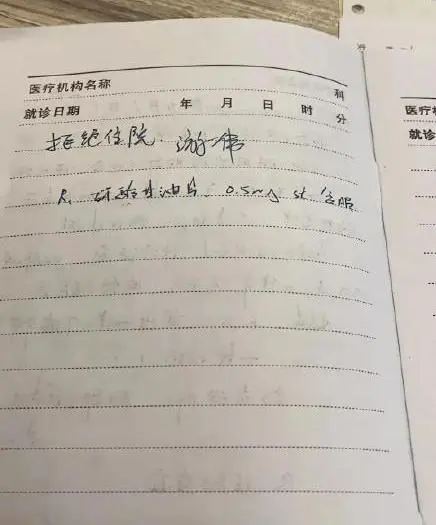 医疗机构名称 科
就诊日期 年 月 日 时 分
拒绝住院.
R. 硝酸甘油片 0.5mg st 含服
医疗
就诊